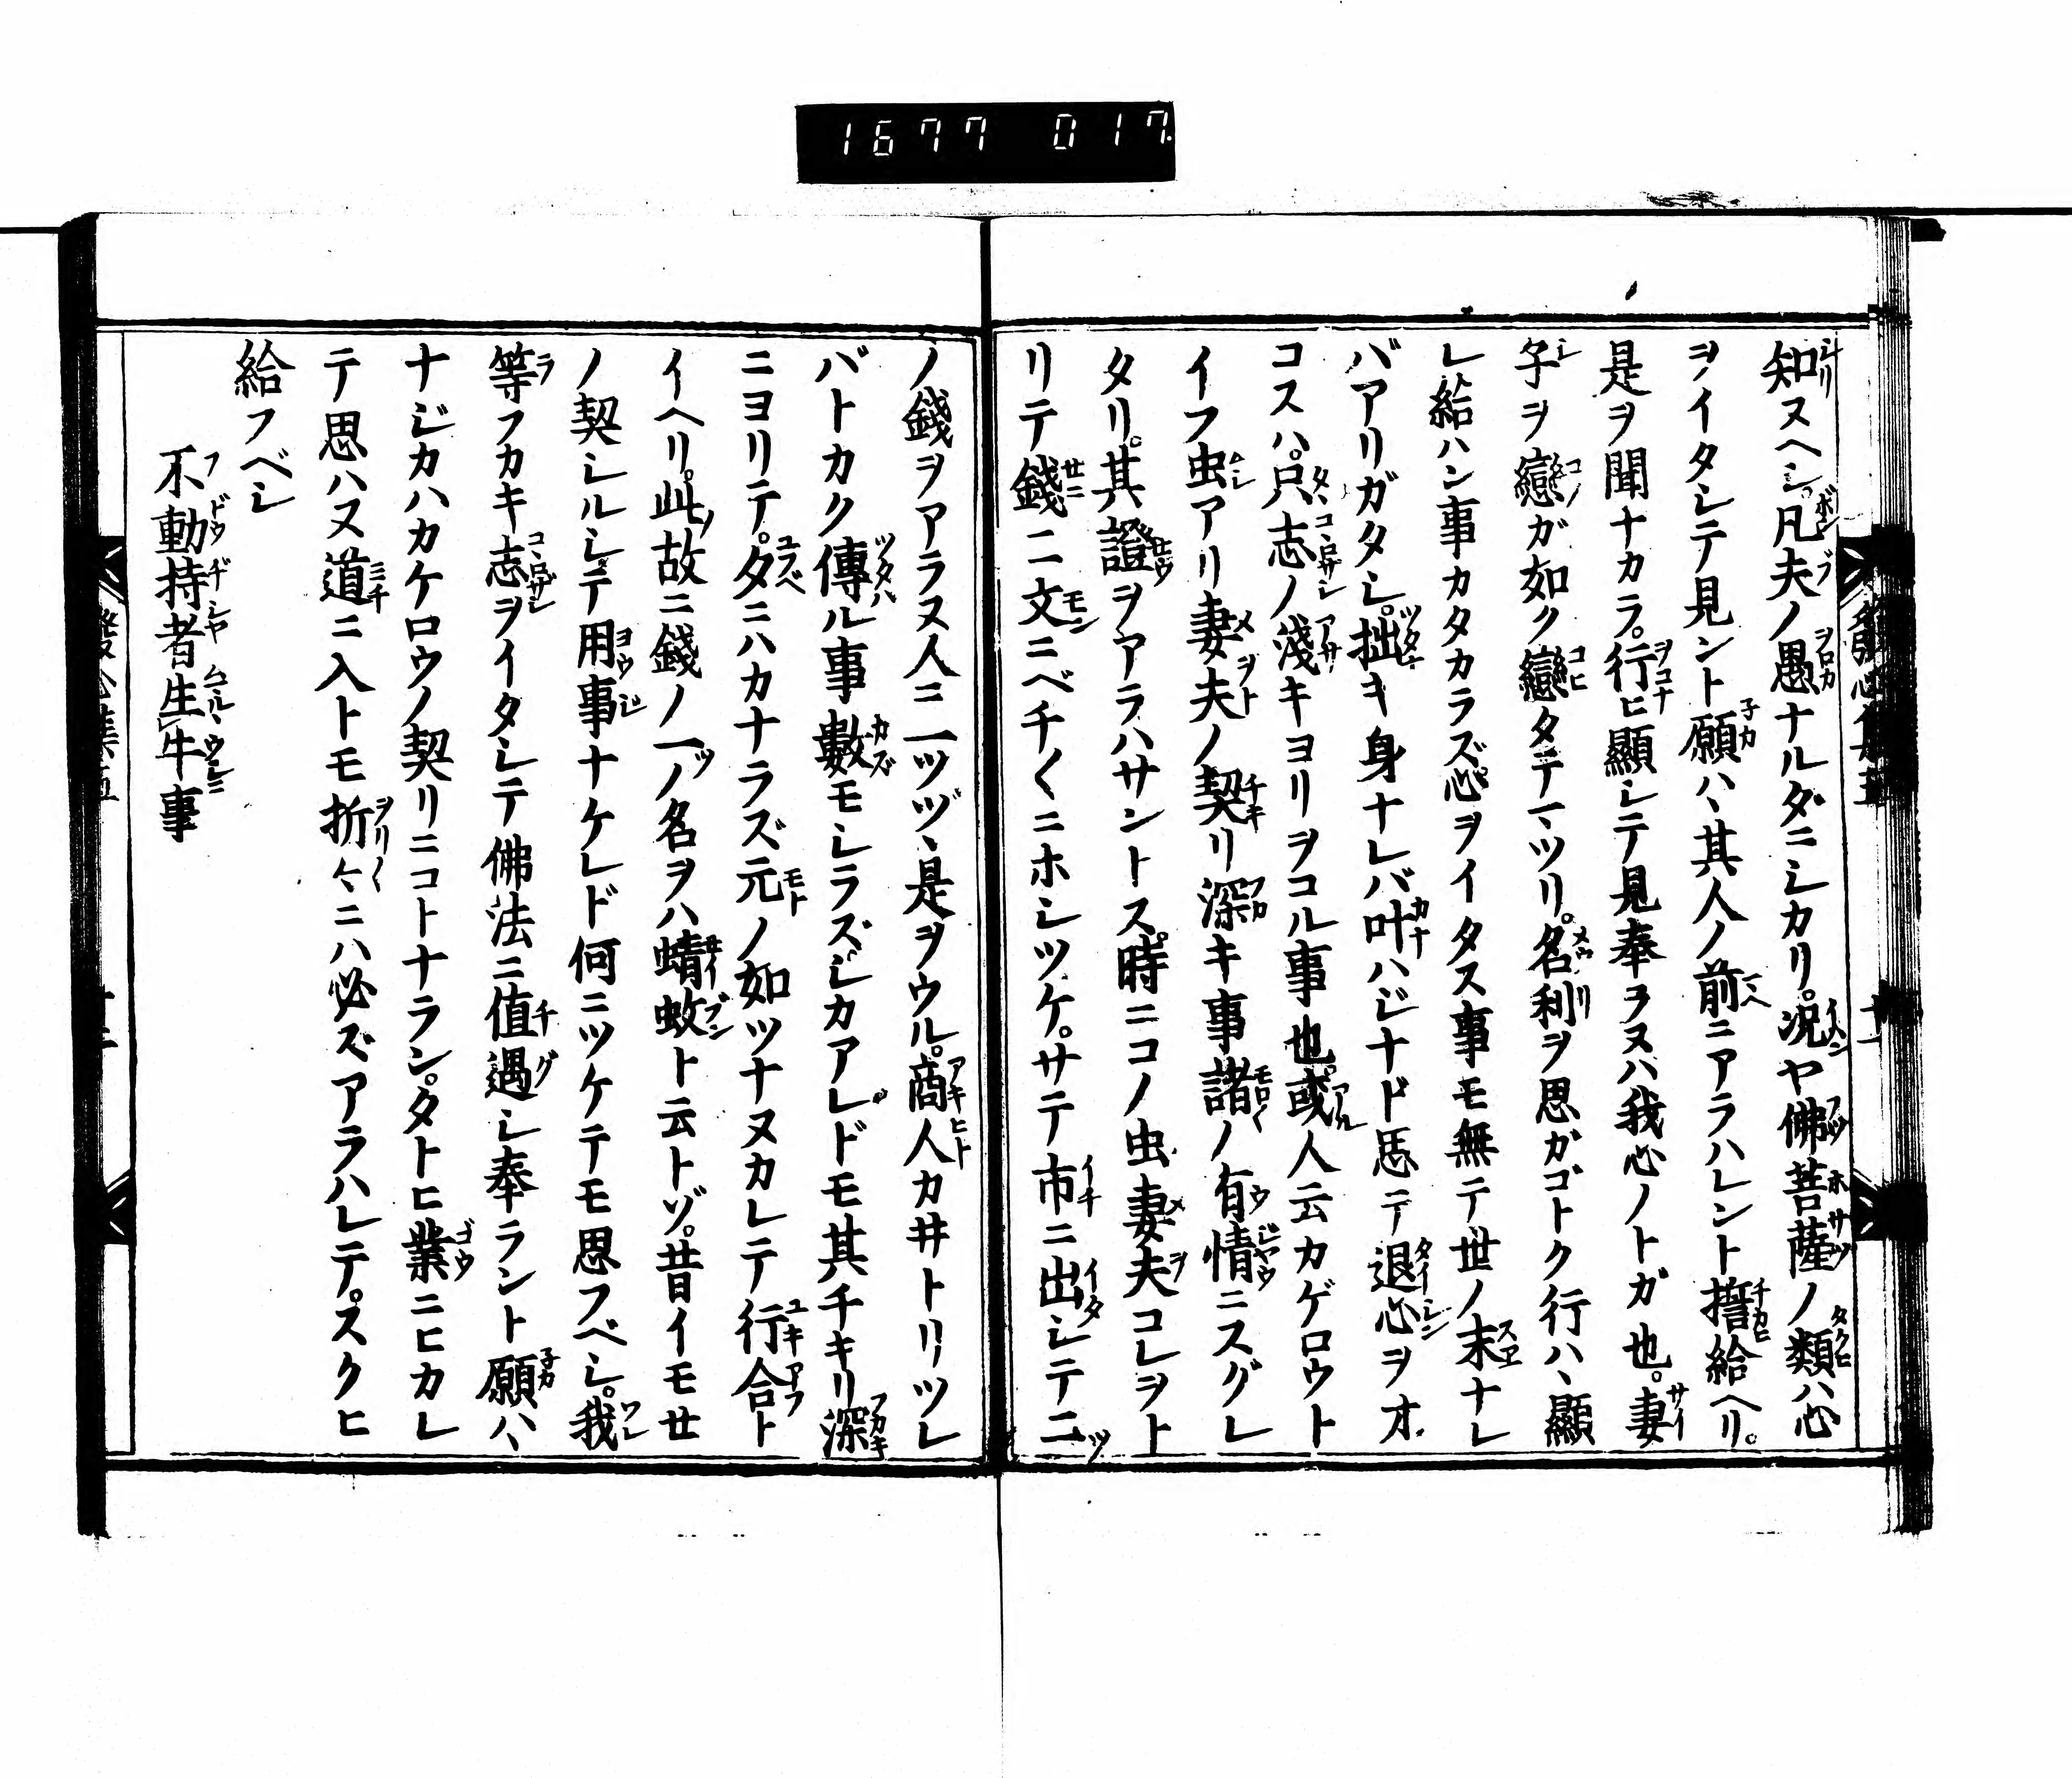 1677 017
知ヌヘシ。凡夫ノ愚ナルダニシカリ。況ヤ佛菩薩ノ類ハ心
ヲイタシテ見ント願ハヽ其人ノ前ニアラハレント誓給ヘリ。
是ヲ聞ナカラ。行ヒ顯シテ見奉ラヌハ我心ノトガ也。妻
子ヲ戀ガ如ク戀タテマツリ。名利ヲ思ガゴトク行ハヽ顯
レ給ハン事カタカラズ心ヲイタス事モ無テ世ノ末ナレ
バアリガタシ。拙キ身ナレバ叶ハジナド思テ退心ヲオ
コスハ。只志ノ淺キヨリヲコル事也。或人云カゲロウト
イフ虫アリ妻夫ノ契リ深キ事諸ノ有情ニスグレ
タリ。其證ヲアラハサントス。時ニコノ虫妻夫コレヲト
リテ錢二文ニベチ〱ニホシツケ。サテ市ニ出シテ二
ノ錢ヲアラヌ人ニ一ツヅヽ是ヲウル。商人カ井トリツレ
バトカク傳ル事數モシラズシカアレドモ其チキリ深
ニヨリテ。夕ニハカナラズ元ノ如ツナヌカレテ行合ト
イヘリ。此故ニ錢ノ一ノ名ヲハ蜻蚊ト云トゾ。昔イモセ
ノ契シルシテ用事ナケレド何ニツケテモ思フベシ。我
等フカキ志ヲイタシテ佛法ニ値遇シ奉ラント願ハヽ
ナジカハカケロウノ契リニコトナラン。タトヒ業ニヒカレ
テ思ハヌ道ニ入トモ折々ニハ必ズアラハレテ。スクヒ
給フベシ
不動持者生牛事